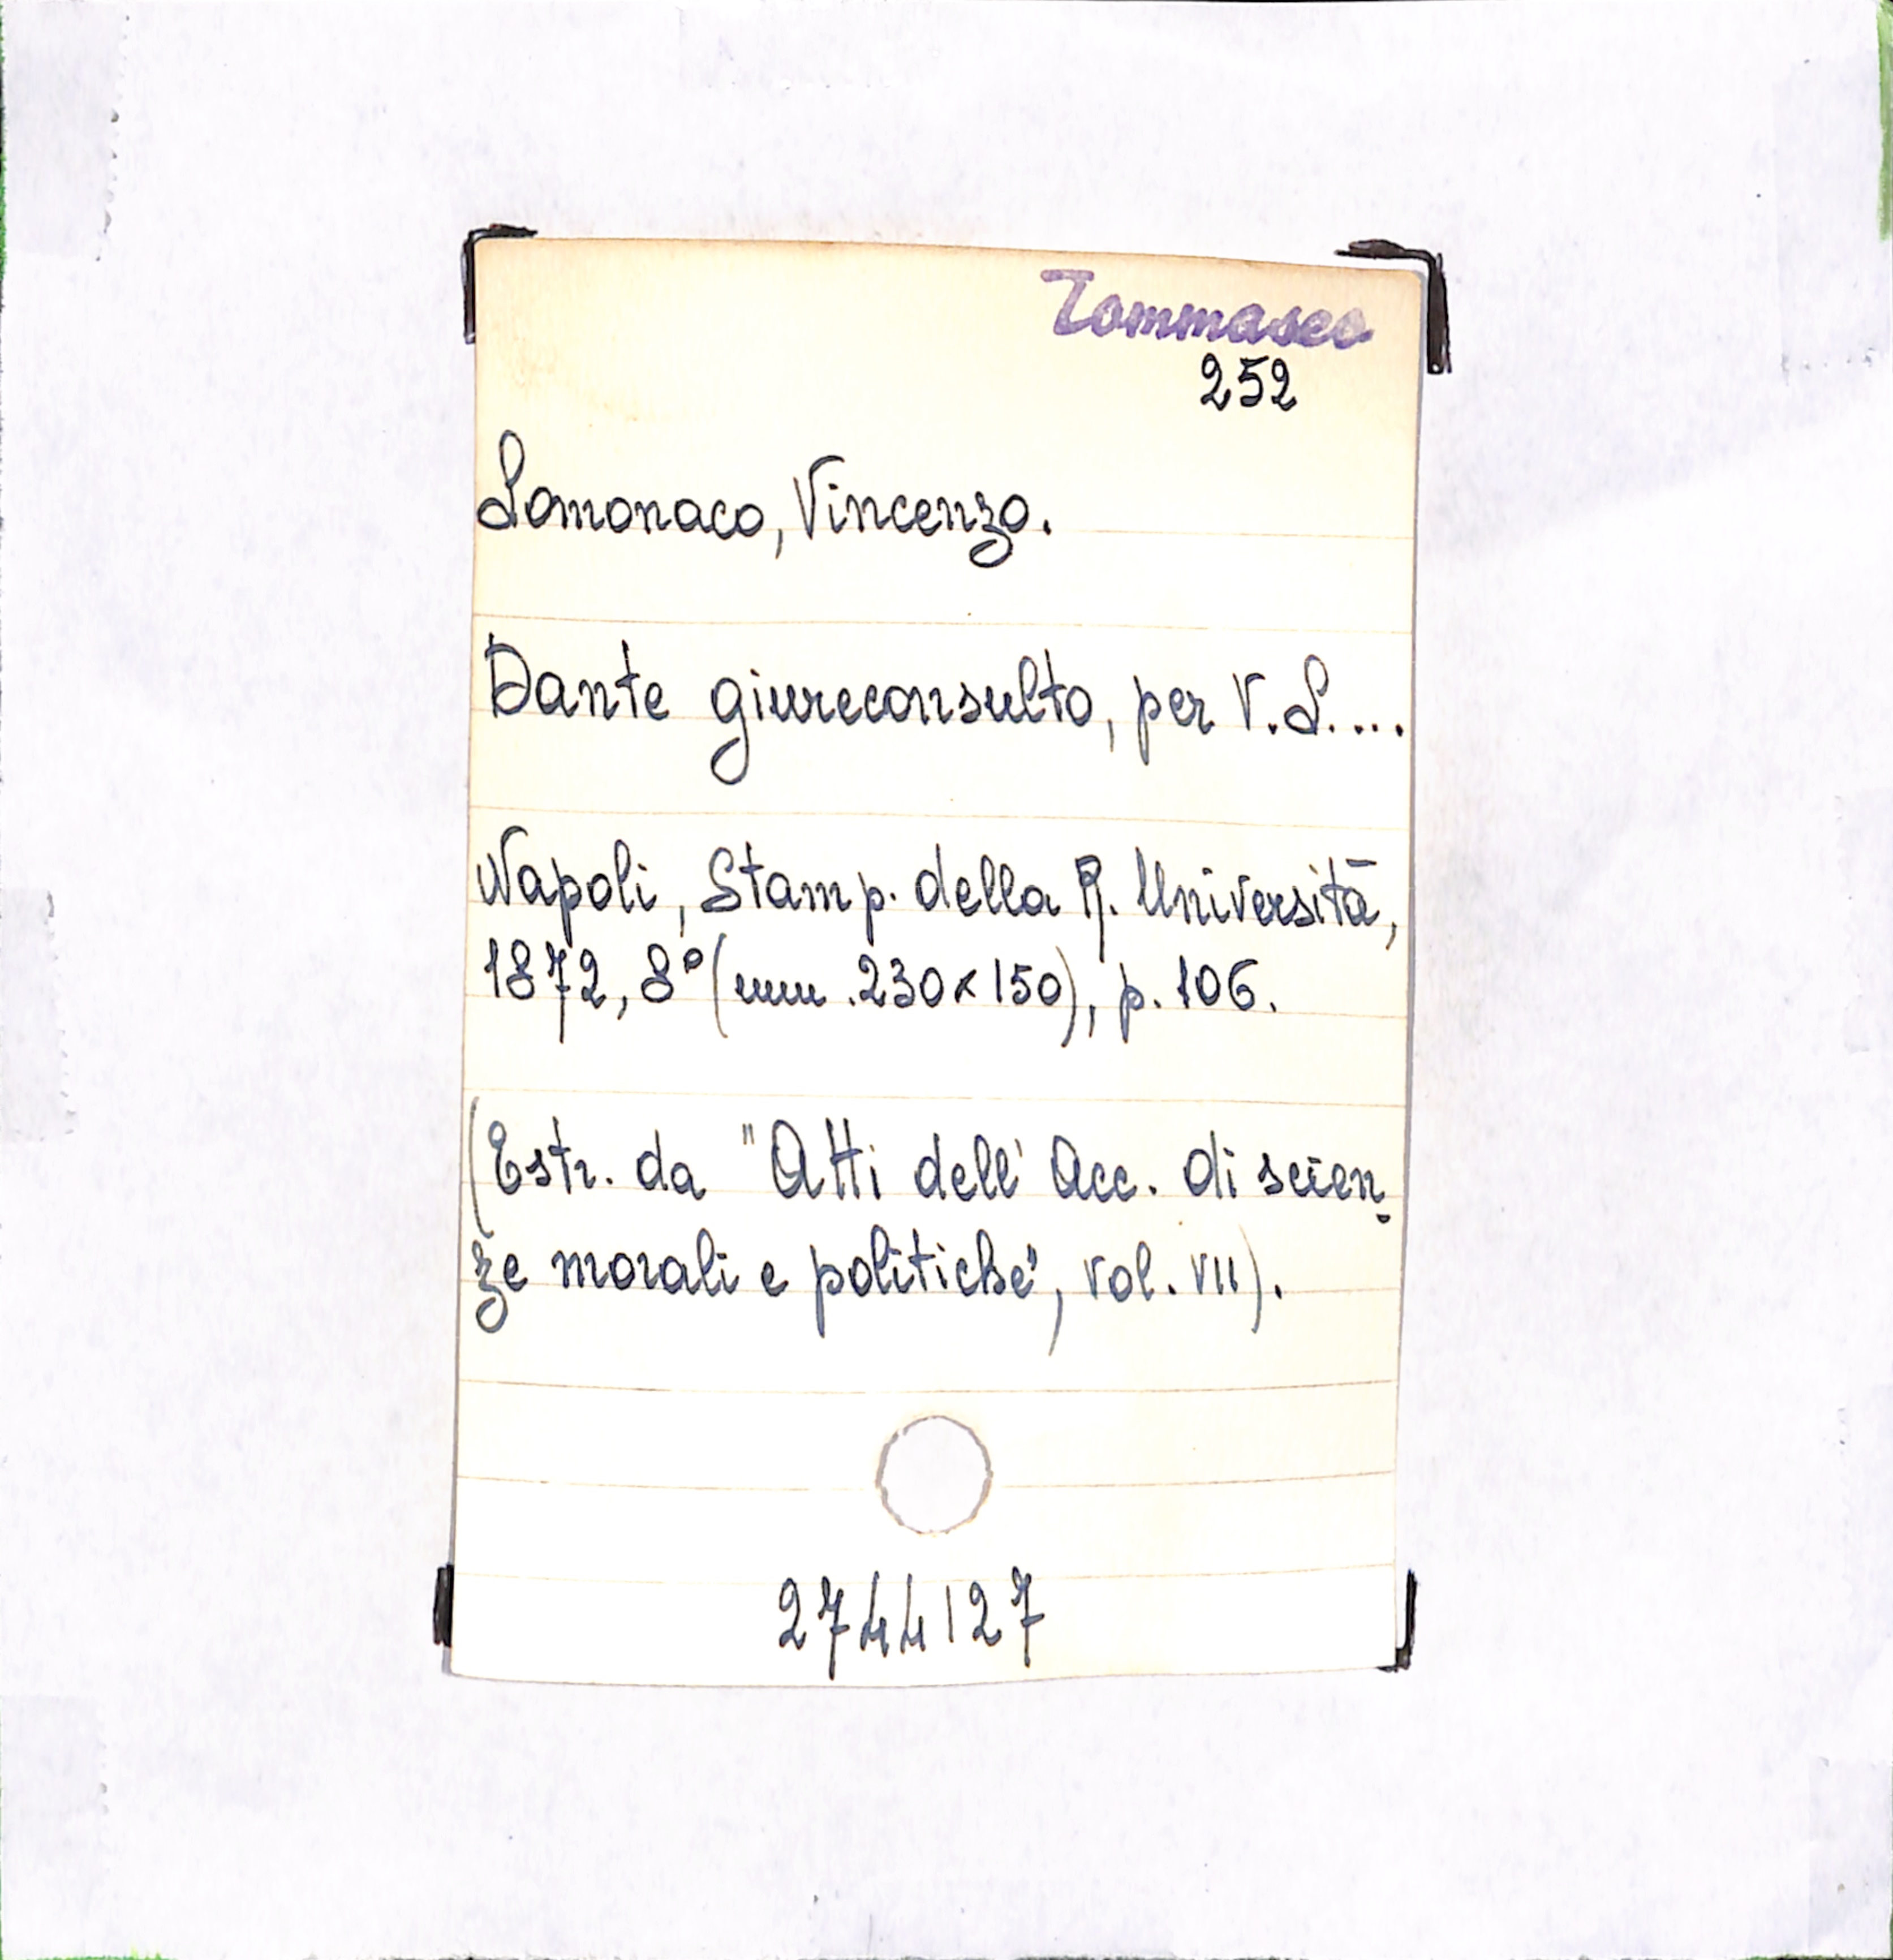 Tommaseo
252
Lomonaco, Vincenzo.
Dante giureconsulto, per V. L....
Napoli, Stamp. della R. Università,
1872, 8° (mm. 230 x 150), p. 106.
(Estr. da "Atti dell'Acc. di scien-
ze morali e politiche", vol. VII).
2744127